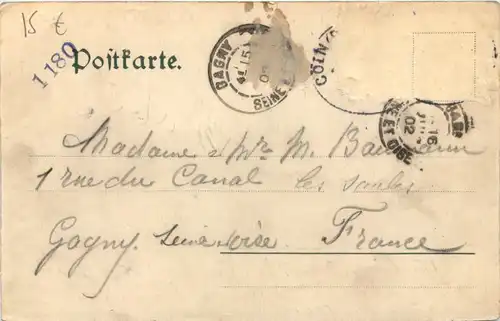 15 €
1180
Postkarte.
GAGNY
15
SEINE
CÖLN
16
02
ET OISE
Madame & Mr. M. Baumann
1 rue du Canal les
Gagny. Seine Oise. France